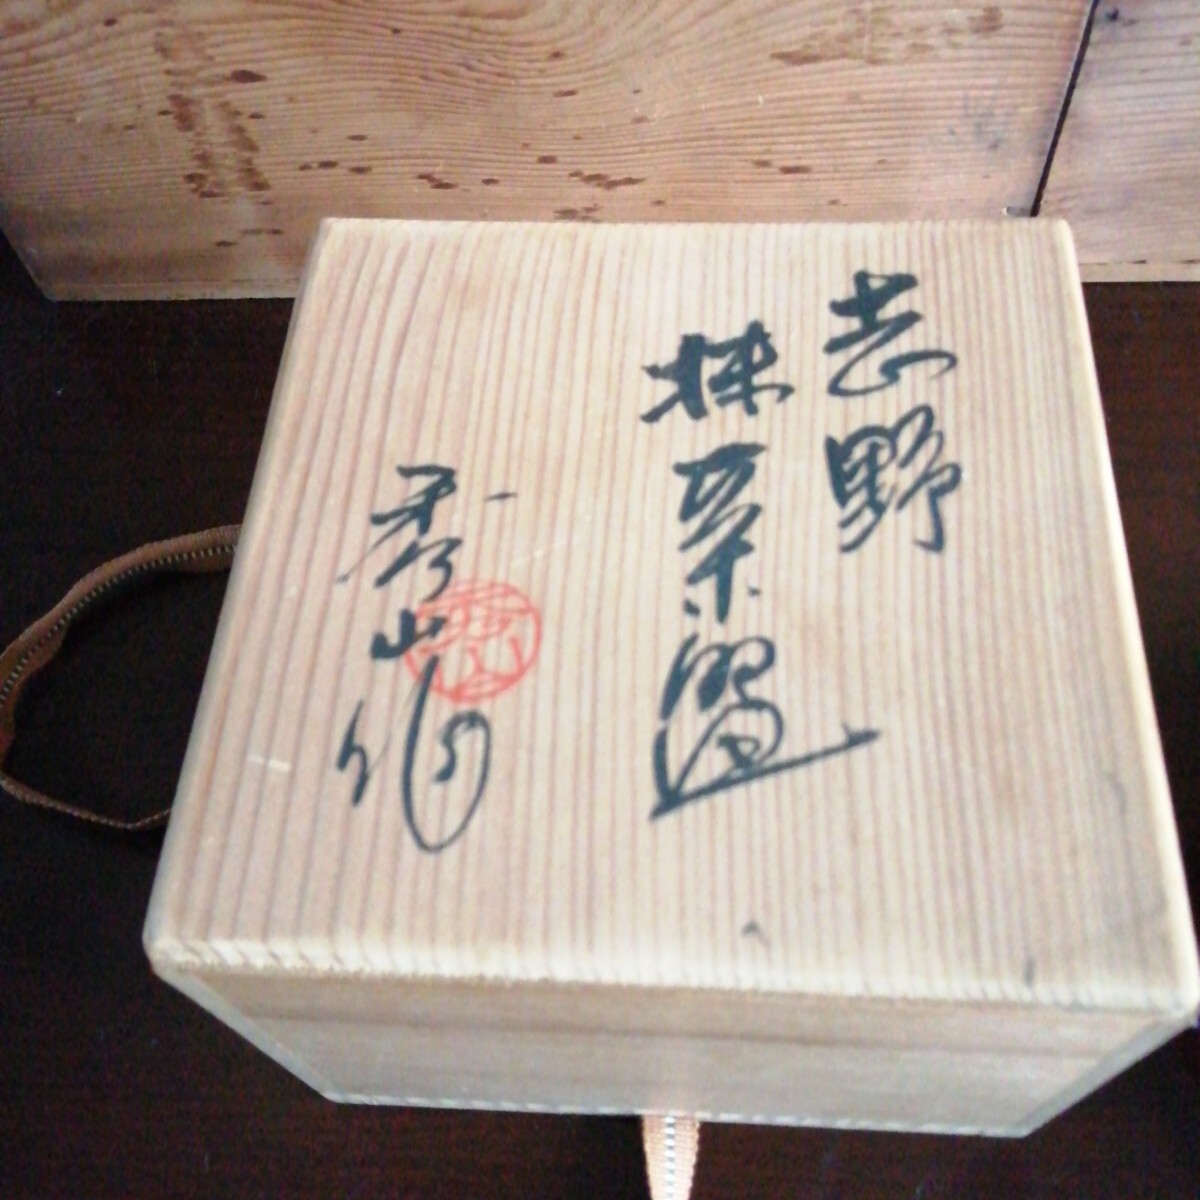 志野
抹茶碗
秀山作